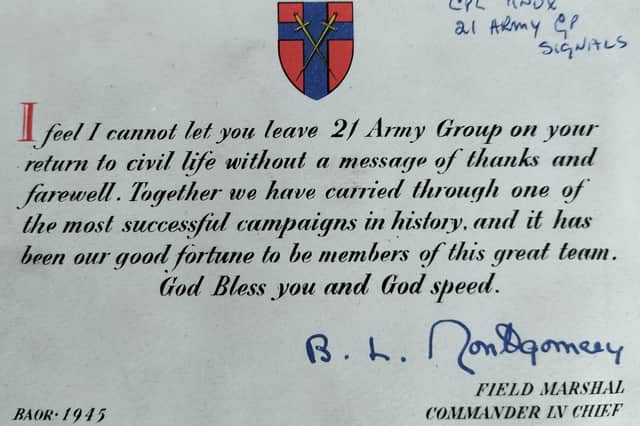 CPL KNOX
21 ARMY GP
SIGNALS
I feel I cannot let you leave 21 Army Group on your
return to civil life without a message of thanks and
farewell. Together we have carried through one of
the most successful campaigns in history, and it has
been our good fortune to be members of this great team.
God Bless you and God speed.
B. L. Montgomery
FIELD MARSHAL
COMMANDER IN CHIEF
BAOR·1945